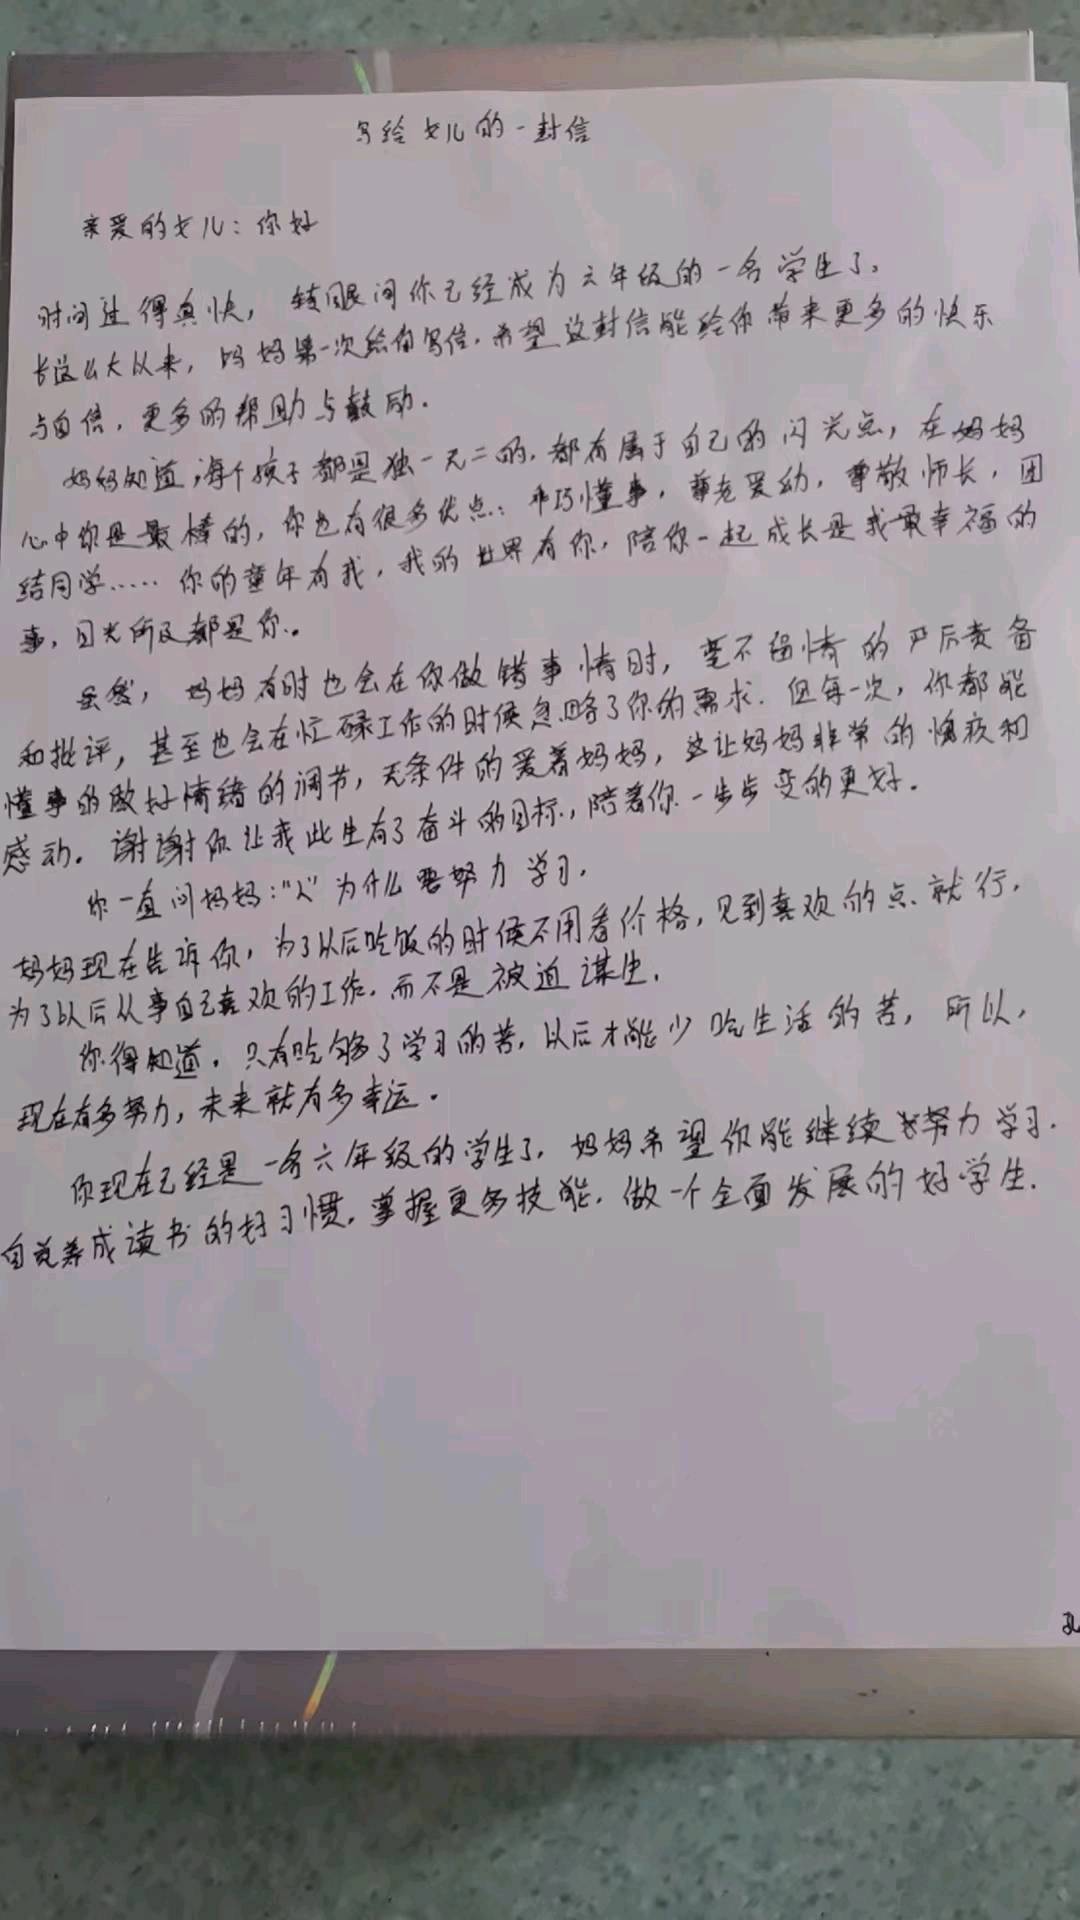 写给女儿的一封信
亲爱的女儿：你好
时间过得真快，转眼间你已经成为六年级的一名学生了。
长这么大以来，妈妈第一次给你写信，希望这封信能给你带来更多的快乐
与自信，更多的帮助与鼓励.
妈妈知道，每个孩子都是独一无二的，都有属于自己的闪光点，在妈妈
心中你是最棒的，你也有很多优点：乖巧懂事，尊老爱幼，尊敬师长，团
结同学……你的童年有我，我的世界有你，陪你一起成长是我最幸福的
事，目光所及都是你。
虽然，妈妈有时也会在你做错事情时，毫不留情的严厉责备
和批评，甚至也会在忙碌工作的时候忽略了你的需求. 但每一次，你都能
懂事的做好情绪的调节，无条件的爱着妈妈，这让妈妈非常的愧疚和
感动。谢谢你让我此生有了奋斗的目标，陪着你一步步变的更好.
你一直问妈妈：“人”为什么要努力学习.
妈妈现在告诉你，为了以后吃饭的时候不用看价格，见到喜欢的点就行.
为了以后从事自己喜欢的工作，而不是被迫谋生.
你得知道，只有吃够了学习的苦，以后才能少吃生活的苦，所以，
现在有多努力，未来就有多幸运.
你现在已经是一名六年级的学生了，妈妈希望你能继续努力学习.
自觉养成读书的好习惯，掌握更多技能，做一个全面发展的好学生.